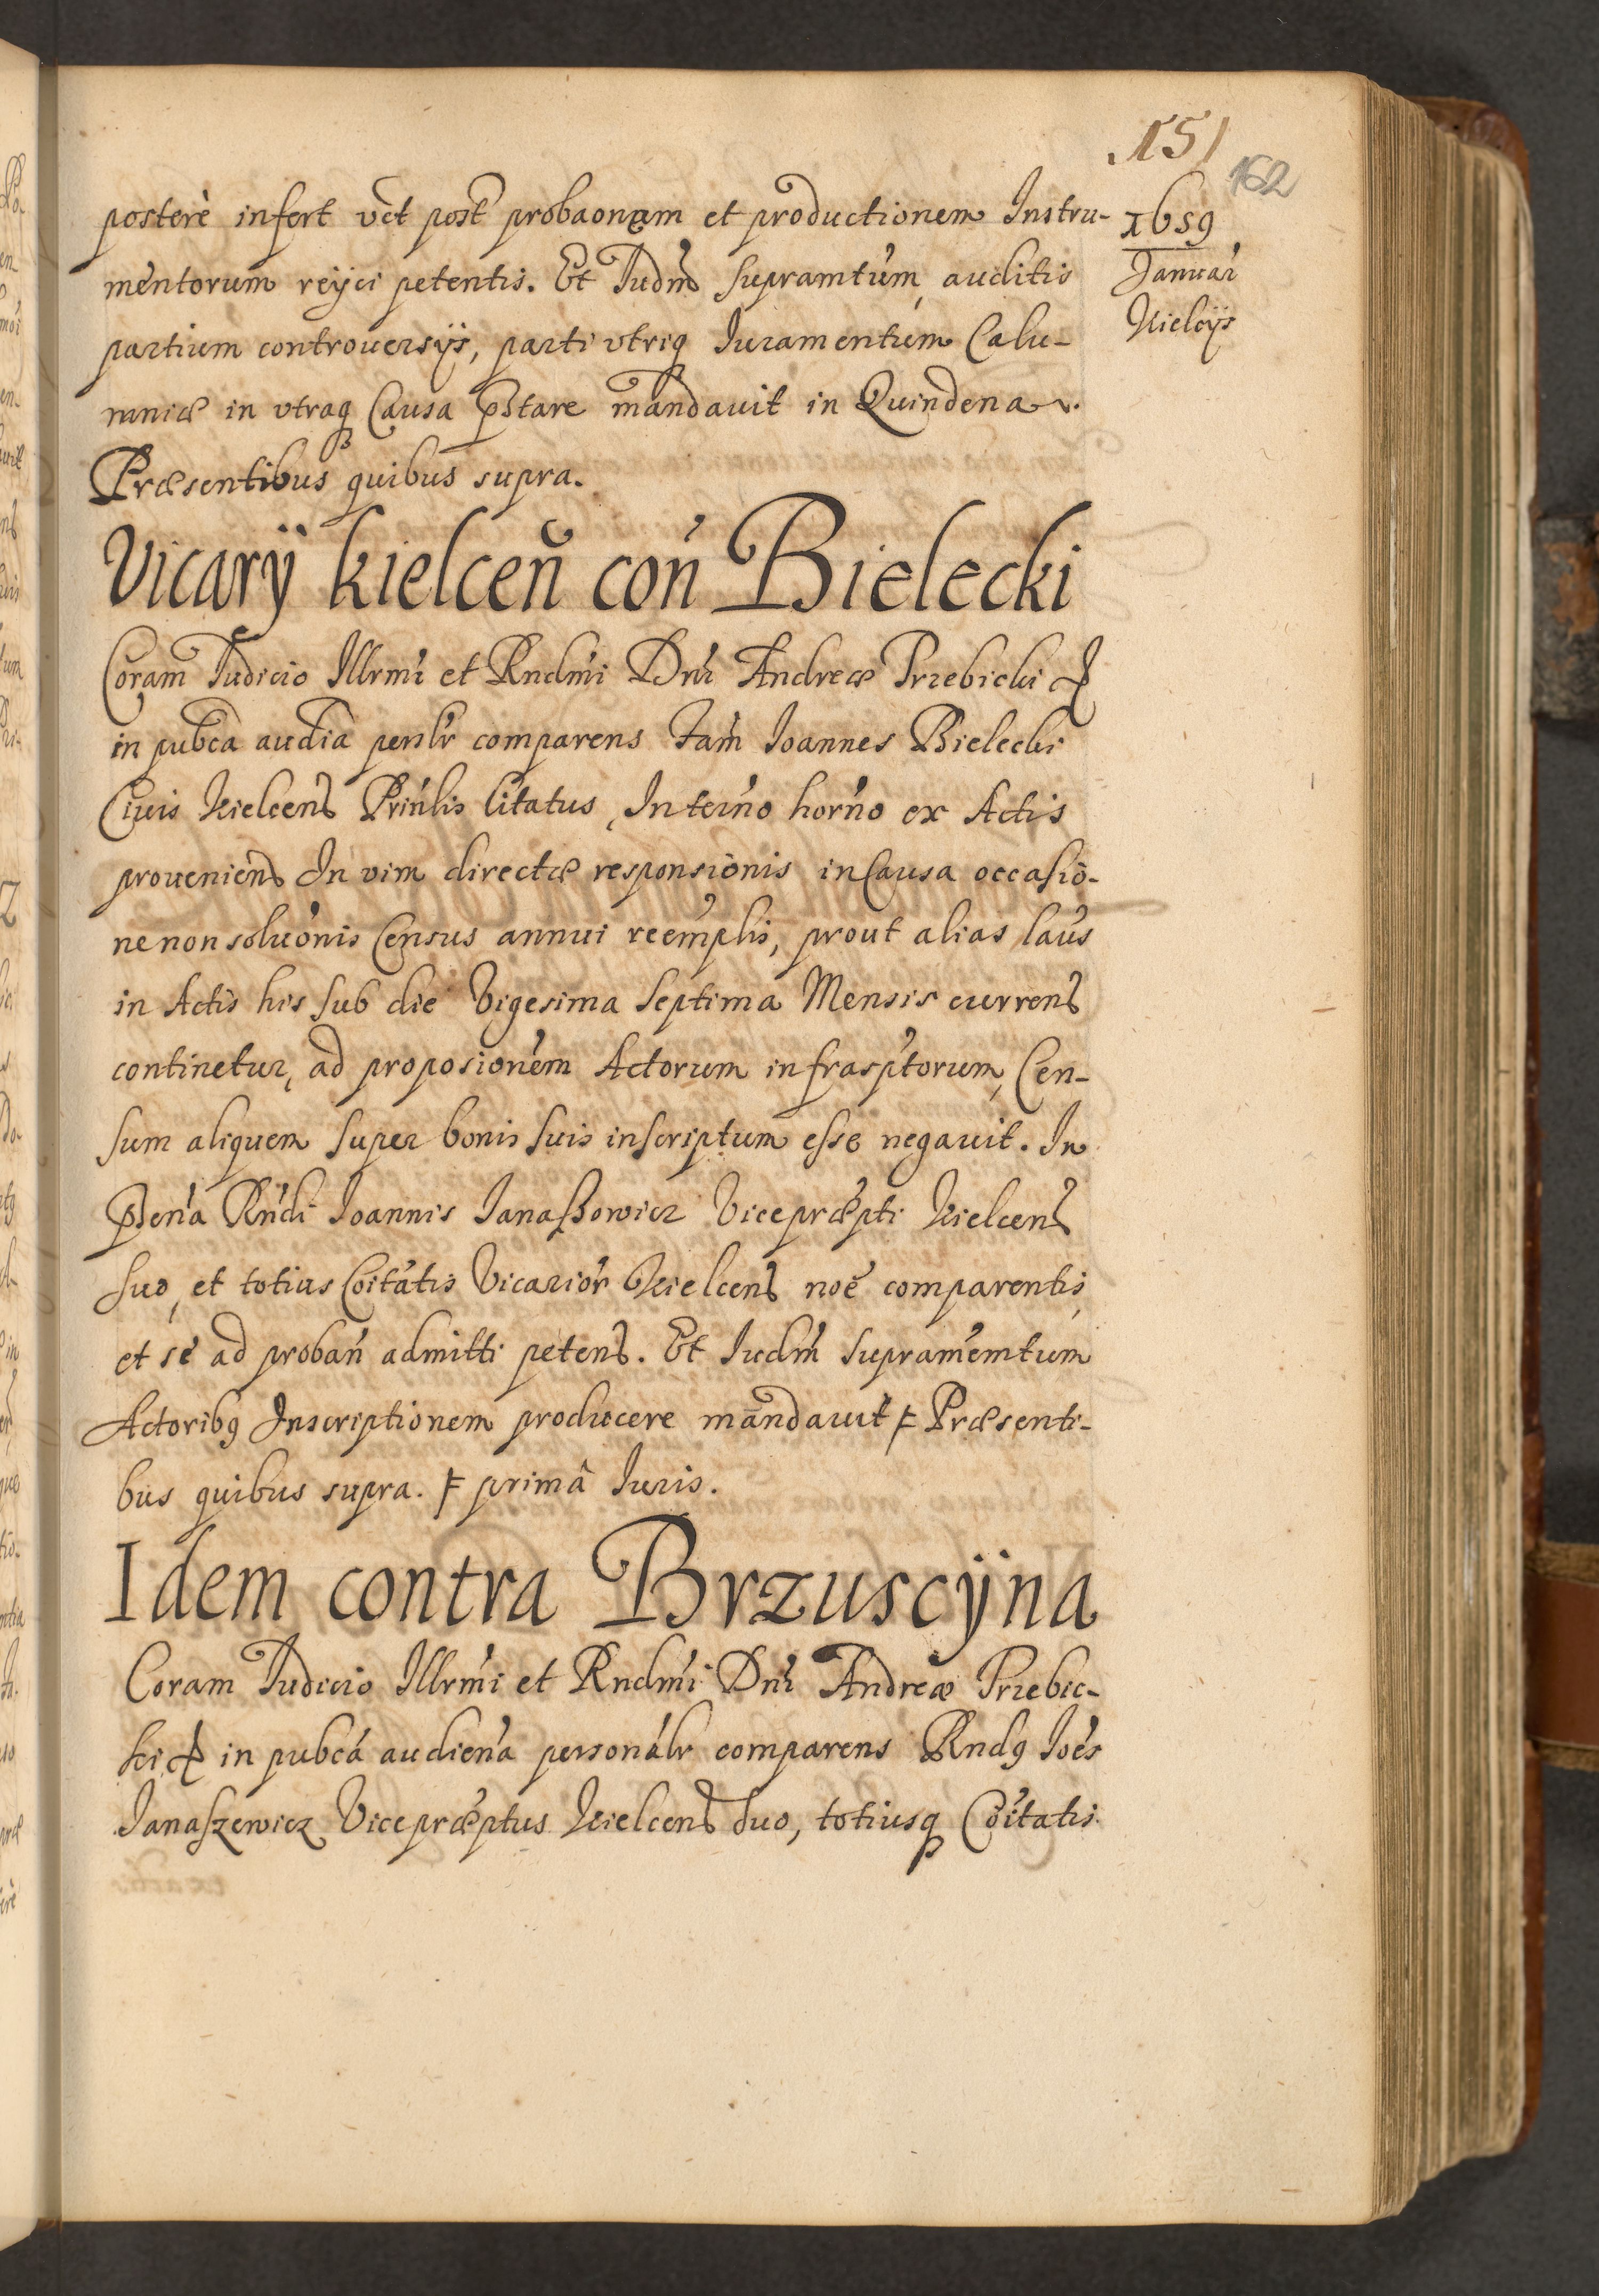 151
162
1659
Januar
Kielcijs
posterè infert vēt post probaonem et productionem Instru-
mentorum reijci petentis. Et Iudm̄ supramtum, auditis
partium controuersijs, parti vtriq Iuramentum Calu-
mniæ in vtraq Causa pstare mandauit in Quindena.
Præsentibus quibus supra.
Vicarij kielceñ coń Bielecki
Coram Iudicio Illrmi et Rndmi Dni Andreæ Trzebicki &
in pubca audia persłr comparens Fam Ioannes Bielecki
Ciuis Kielcens Prinlis Citatus, In terno horno ex Actis
proueniens In vim directæ responsionis in Causa occasio-
ne non soluonis Census annui reemplis, prout alias laus
in Actis his sub die Vigesima Septima Mensis currens
continetur, ad proposionem Actorum infrasptorum, Cen-
sum aliquem super bonis suis inscriptum esse negauit. In
psena Rndi Ioannis Janaszowicz Vicepræpti Kielcens
suo, et totius Coitatis Vicarior Kielcens noe comparentis,
et se ad proban admitti petens. Et Iudm supramemtum
Actoribq Inscriptionem producere mandauit Ғ Præsenti-
bus quibus supra. Ғ primâ Iuris.
Idem contra Brzuscÿna
Coram Iudicio Illrmi et Rndmi Dni Andreæ Trzebic-
ki & in pubcá audiena personálr comparens Rndq Ioes
Janaszewicz Vicepræptus Kielcens suo, totiusq Coitatis